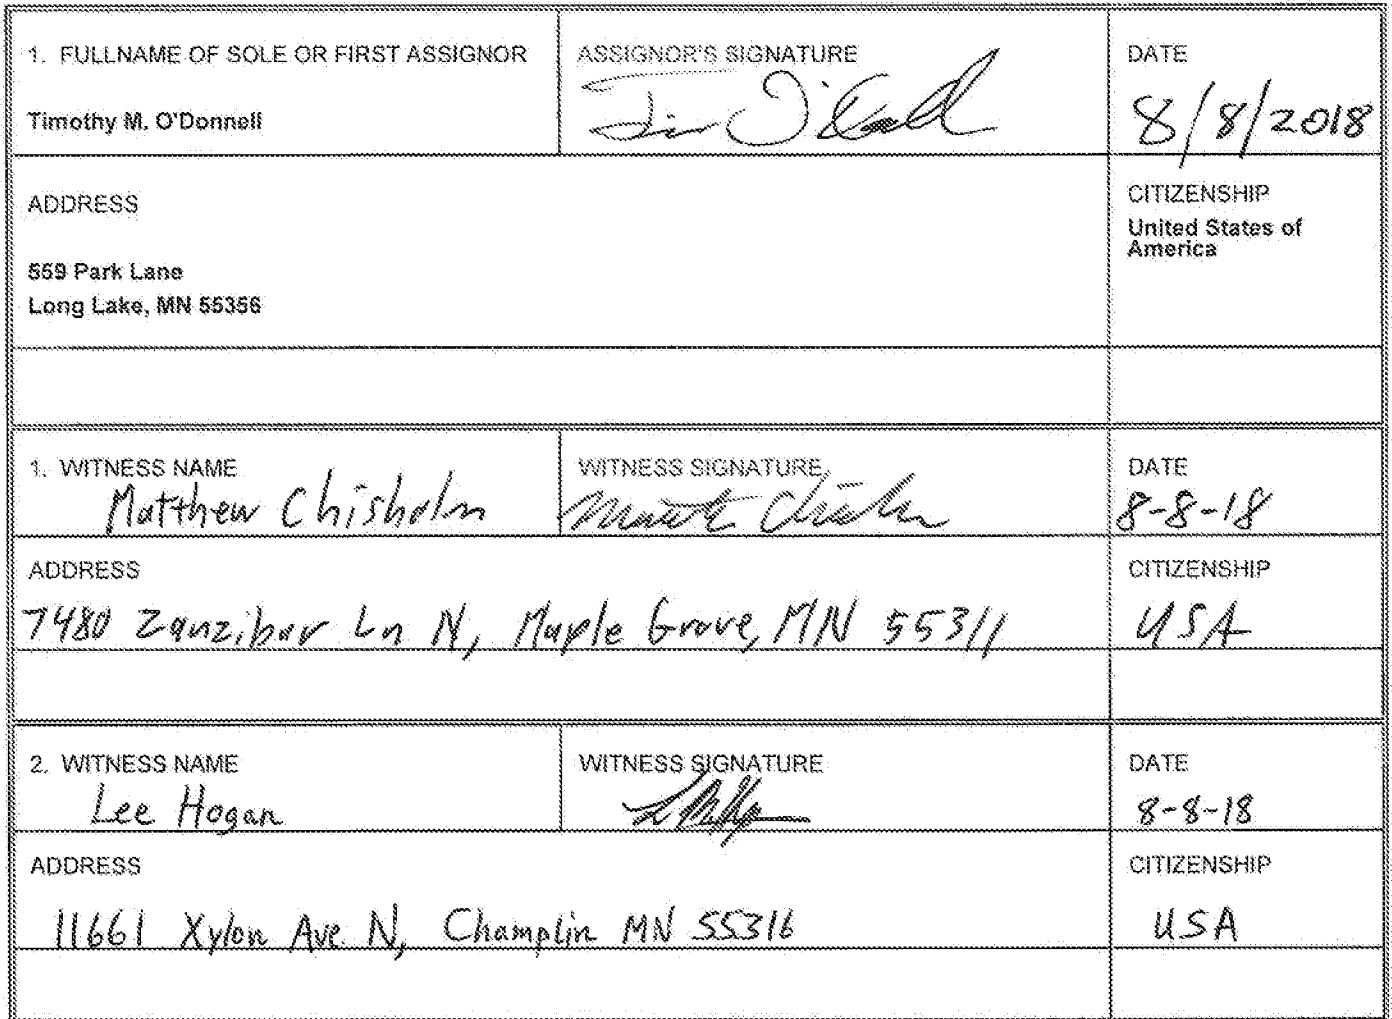 1. FULLNAME OF SOLE OR FIRST ASSIGNOR
Timothy M. O'Donnell
ASSIGNOR'S SIGNATURE
Tim O'Donnell
DATE
8/8/2018
ADDRESS
559 Park Lane
Long Lake, MN 55356
CITIZENSHIP
United States of
America
1. WITNESS NAME
Matthew Chisholm
WITNESS SIGNATURE
DATE
8-8-18
ADDRESS
7480 Zanzibar Ln N, Maple Grove, MN 55311
CITIZENSHIP
USA
2. WITNESS NAME
Lee Hogan
WITNESS SIGNATURE
DATE
8-8-18
ADDRESS
11661 Xylon Ave N, Champlin MN 55316
CITIZENSHIP
USA